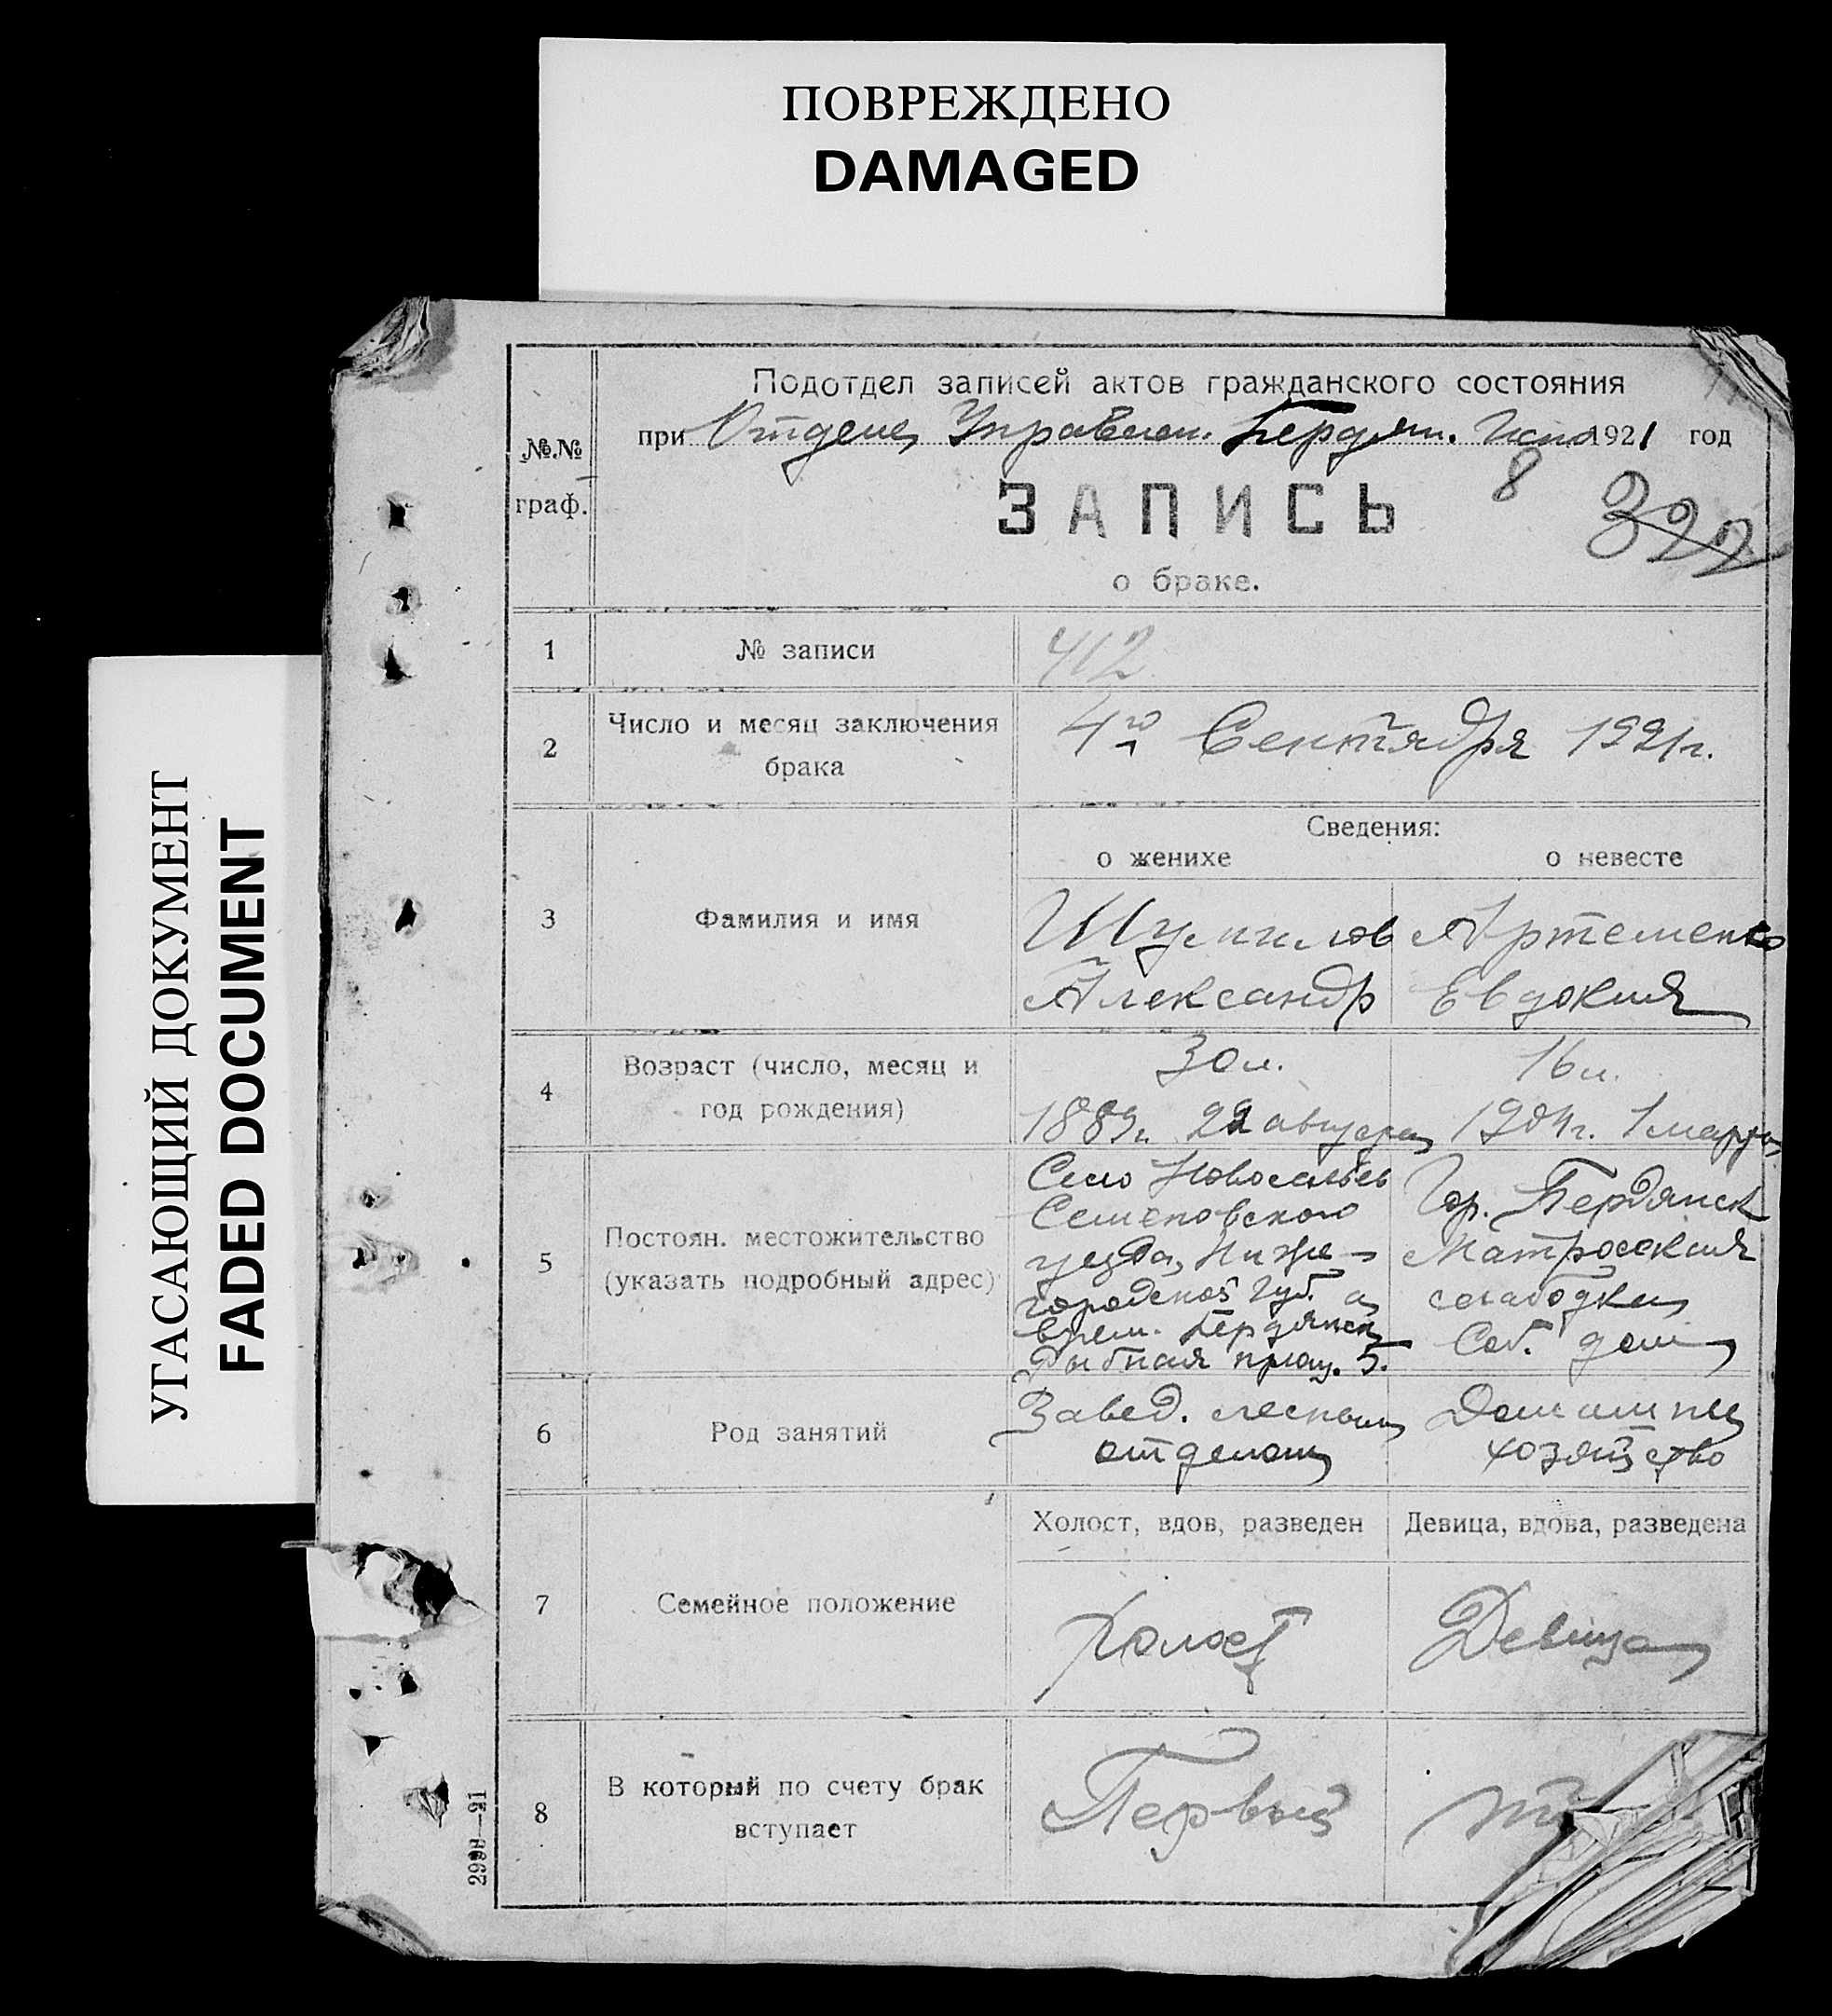 ПОВРЕЖДЕНО
DAMAGED
УГАСАЮЩИЙ ДОКУМЕНТ
FADED DOCUMENT
Подотдел записей актов гражданского состояния
при Отделе Управлен. Бердян. Испо 1921 год
№№
граф.
8
322
ЗАПИСЬ
о браке.
1
№ записи
412
2
Число и месяц заключения
брака
4го Сентября 1921г.
Сведения:
о женихе
о невесте
3
Фамилия и имя
Шумилов
Александр
Артеменко
Евдокия
4
Возраст (число, месяц и
год рождения)
30 л.
1889г. 22 августа
16 л.
1904г. 1 марта
5
Постоян. местожительство
(указать подробный адрес)
Село
Семеновского
уезда, Ниже-
городской губ. а
врем. Бердянск
Рыбная площ. 5.
Гор. Бердянск
Матросская
слободка
Соб. дом
6
Род занятий
Завед. лесным
отделом
Домашнее
хозяйство
7
Семейное положение
Холост, вдов, разведен
Девица, вдова, разведена
Холост
Девица
8
В который по счету брак
вступает
Первый
2998—21